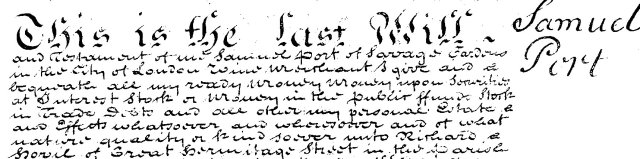 This is the last Will
Samuel
Port
and Testament of me Samuel Port of Savage Gardens
in the City of London Wine Merchant I give and
bequeath all my ready Money Money upon Securities
at Interest Stock or Money in the public ffunds Stock
in Trade Debts and all other my personal Estate
and Effects whatsoever and wheresoever and of what
nature quality or kind soever unto Richard
of Great Hermitage Street in the Parish